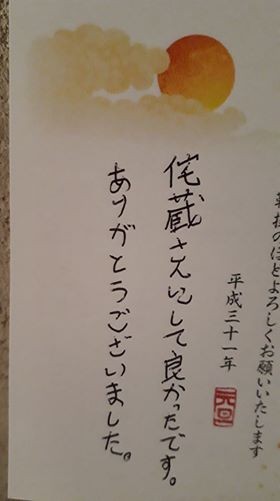 鞭撻のほどよろしくお願いいたします
平成三十一年
元旦
侘蔵さんにして良かったです。
ありがとうございました。